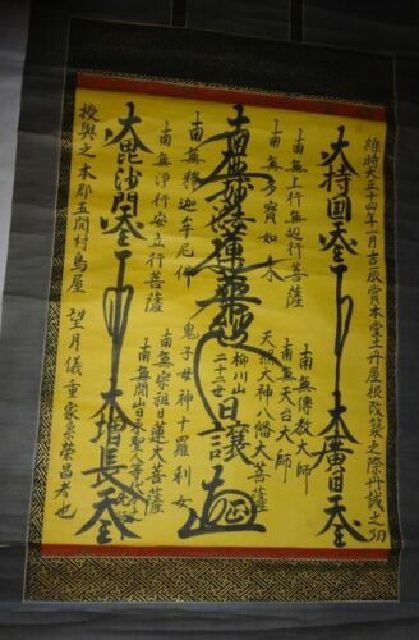 維時大正十四年一月吉辰賞本堂土丹屋根改築之際丹誠之功
大持国天王
大廣目天王
南無上行無辺行菩薩
南無多寶如来
南無傳教大師
南無天台大師
天照大神八幡大菩薩
南無妙法蓮華経
柳川山
二十二世
日讓
南無釈迦牟尼仏
南無浄行安立行菩薩
鬼子母神十羅刹女
南無宗祖日蓮大菩薩
南無開山日
聖人
大毘沙門天王
大増長天王
授與之本郡五開村鳥屋 望月儀重家系榮昌者也